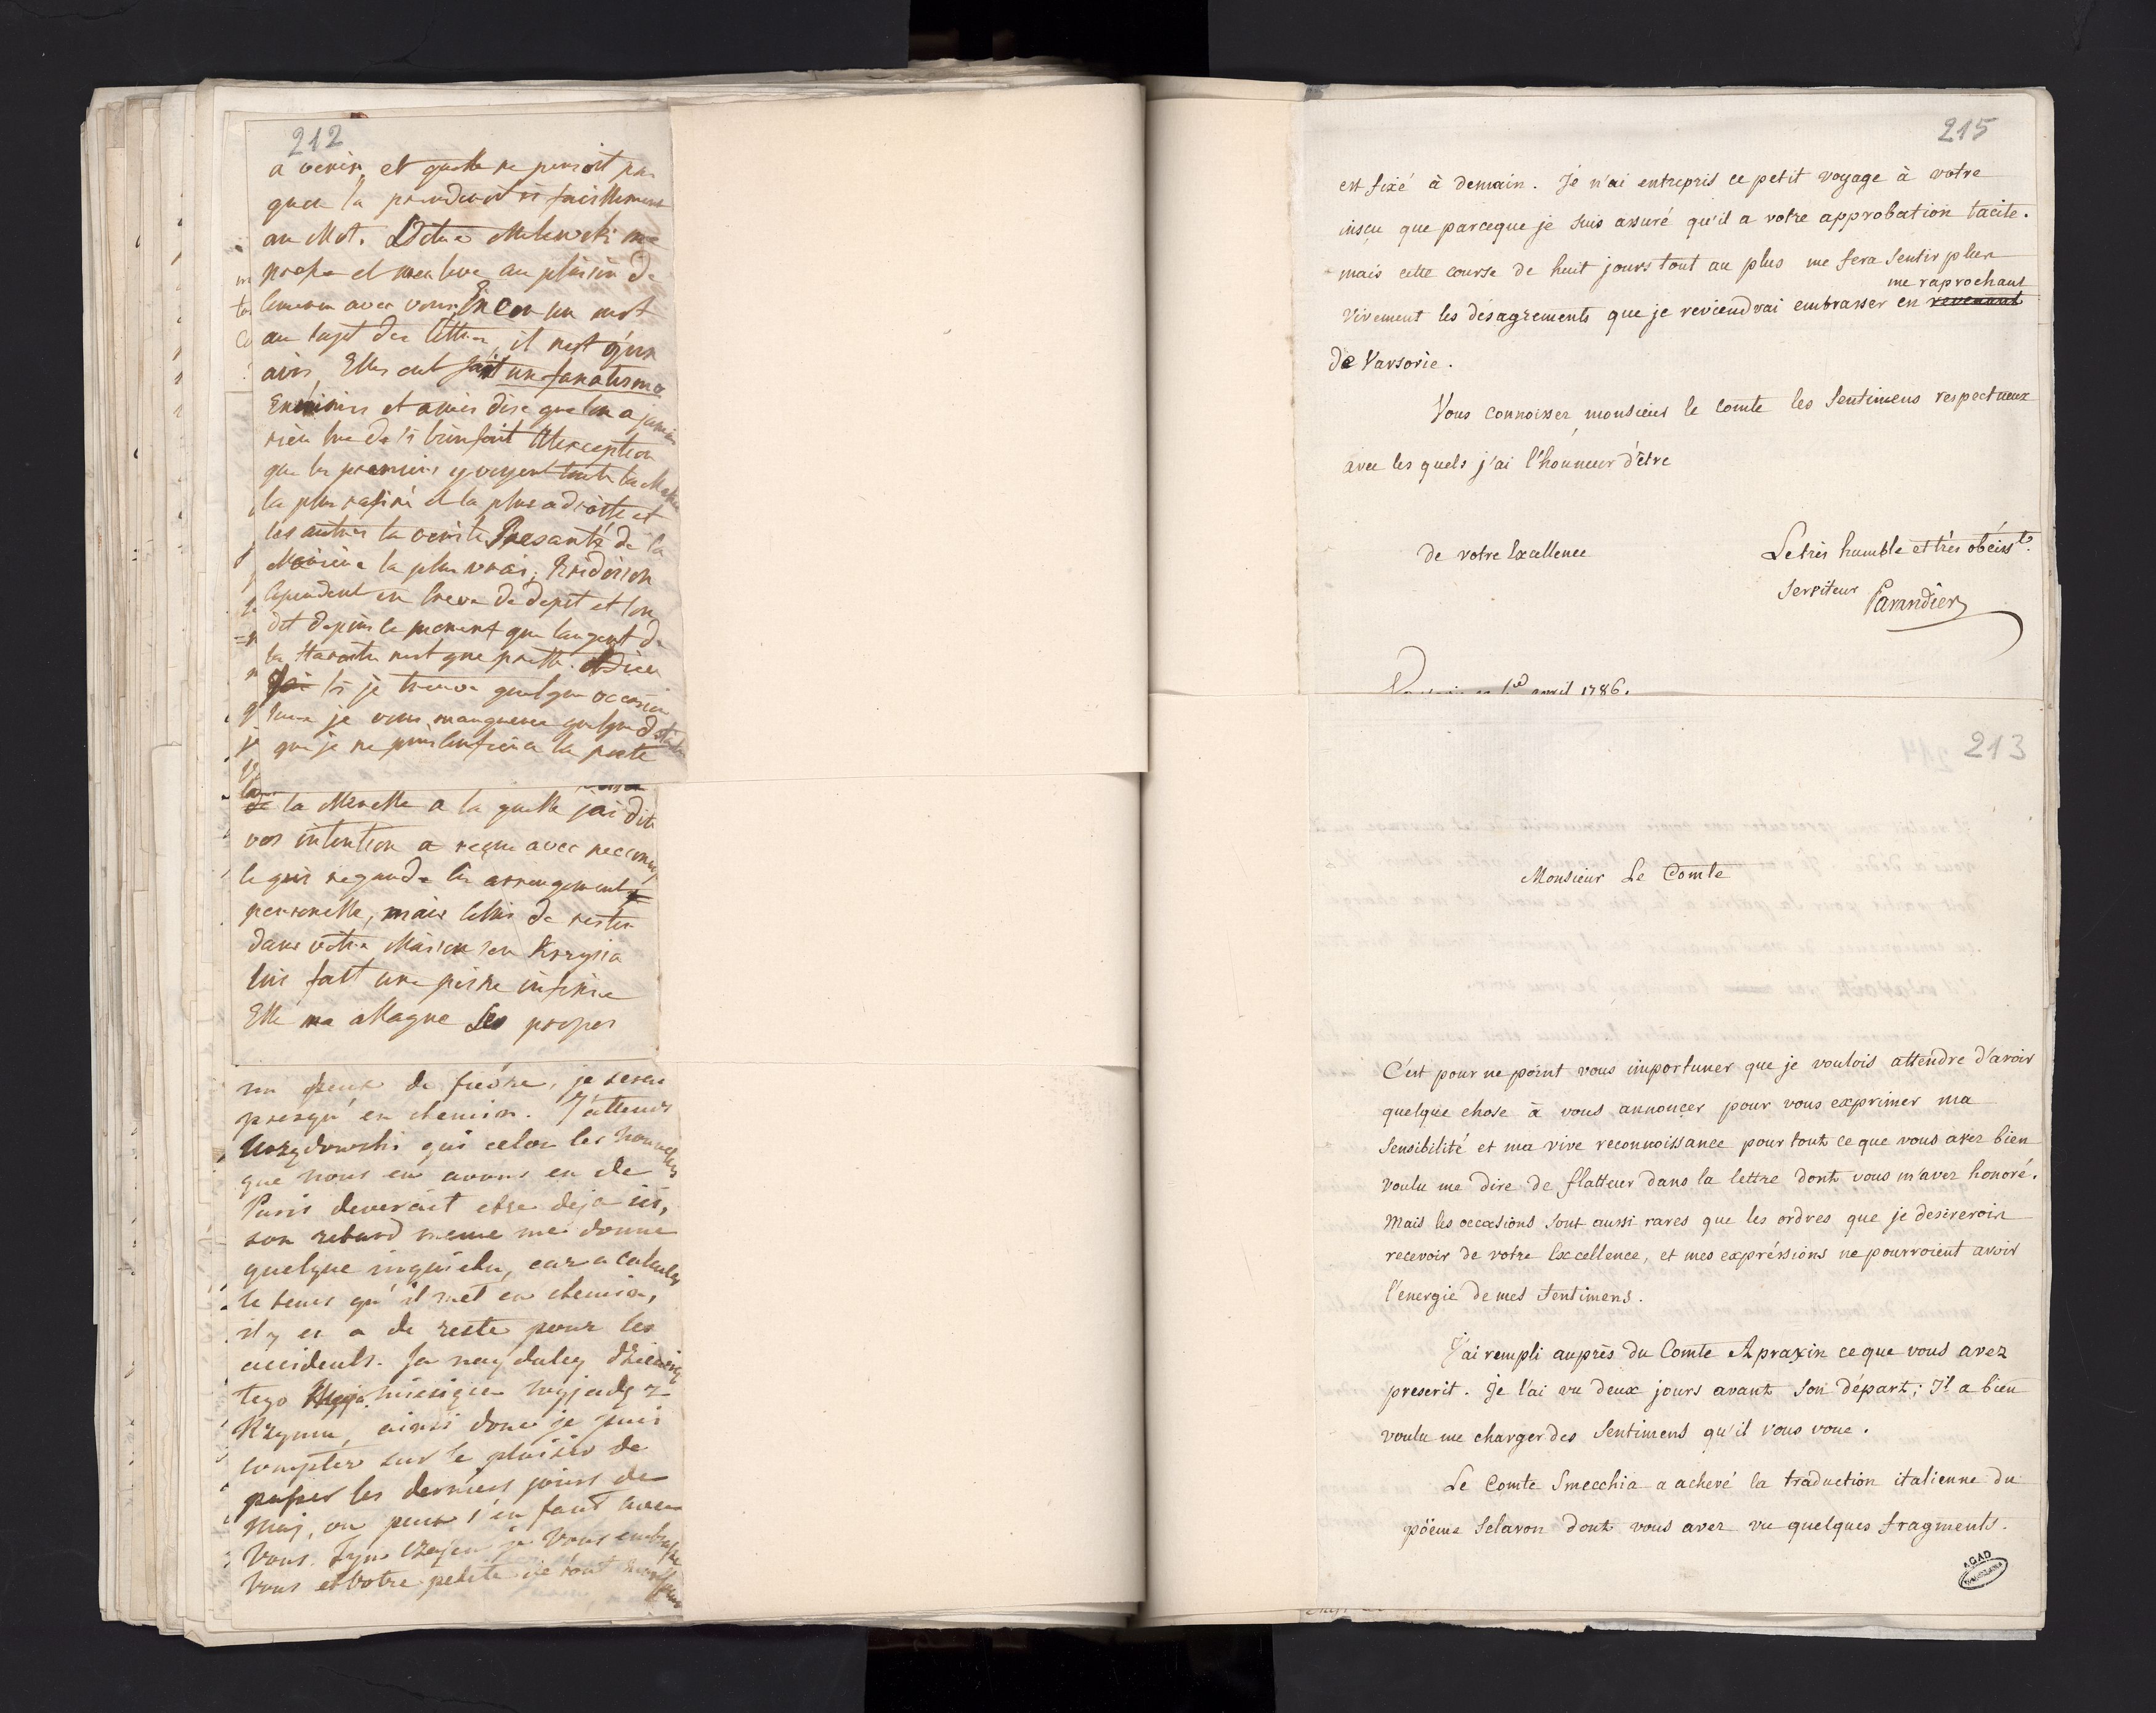 212
a venir, et quelle ne pensoit pas
que la prendroit si facillement
au Mot.
propos et
avec vous. Encor un mot
au sujet des lettres, il nest qu'un
avis, Elles ont fait un fanatisme
Ennimis et amis dise que lon a jamais
rien lue de si bien fait a lexception
que les premiers y voyent toute la
la plus rafiné et la plus adroitte et
les autres la verité Presanté de la
Maniere la plus vraie,
cependent en creve de depit et lon
dit depuis le moment que largent de
la nest que prette. Adieu
si je trouve quelque occasion
sure je vous manquerer quelque
que je ne puis confier a la poste
la Merelle a la quelle jai dit
vos intention a reçue avec
le qui regarde les arrengements
personelle, mais celle de rester
dans votre Maison son Krzysia
lui fait une peine infinie
Elle ma allegue Ses propos
un peu de fievre, je serai
presqu'en chemin. J'attends
qui celon les nouvelles
que nous en avons eu de
Paris deverait etre deja ici,
son retard meme me donne
quelque inquietu, car a calculer
le tems qu'il met en chemin,
il y en a de reste pour les
accidents. Ja naydaley
tego miesiąca wyjadę z
Rzymu, ainsi donc je puis
compter sur le plaisir de
passer les derniers jours de
May, ou peu s'en faut avec
vous. je vous embrasse
vous et votre petite de tout
215
est fixé à demain. Je n'ai entrepris ce petit voyage à votre
insçu que parceque je suis assuré qu'il a votre approbation tacite.
mais cette course de huit jours tout au plus me fera sentir plus
me raprochant
vivement les désagrements que je reviendrai embrasser en revenant
de Varsovie.
Vous connoissez monsieur le comte les sentimens respectueux
avec les quels j'ai l'honneur d'être
de votre Excellence
Le très humble et très obéisst.
serviteur Parandier
avril 1786.
213
Monsieur Le Comte
C'est pour ne point vous importuner que je voulois attendre d'avoir
quelque chose à vous annoncer pour vous exprimer ma
sensibilité et ma vive reconnoissance pour tout ce que vous avez bien
voulu me dire de flatteur dans la lettre dont vous m'avez honoré.
Mais les occasions sont aussi rares que les ordres que je desirerois
recevoir de votre Excellence, et mes expréssions ne pourroient avoir
l'energie de mes sentimens.
J'ai rempli auprès du Comte Apraxin ce que vous avez
prescrit. Je l'ai vu deux jours avant son départ; Il a bien
voulu me charger des sentimens qu'il vous voue.
Le Comte Smecchia a achevé la traduction italienne du
pöeme Sclavon dont vous avez vu quelques fragments.
AGAD
WARSZAWA